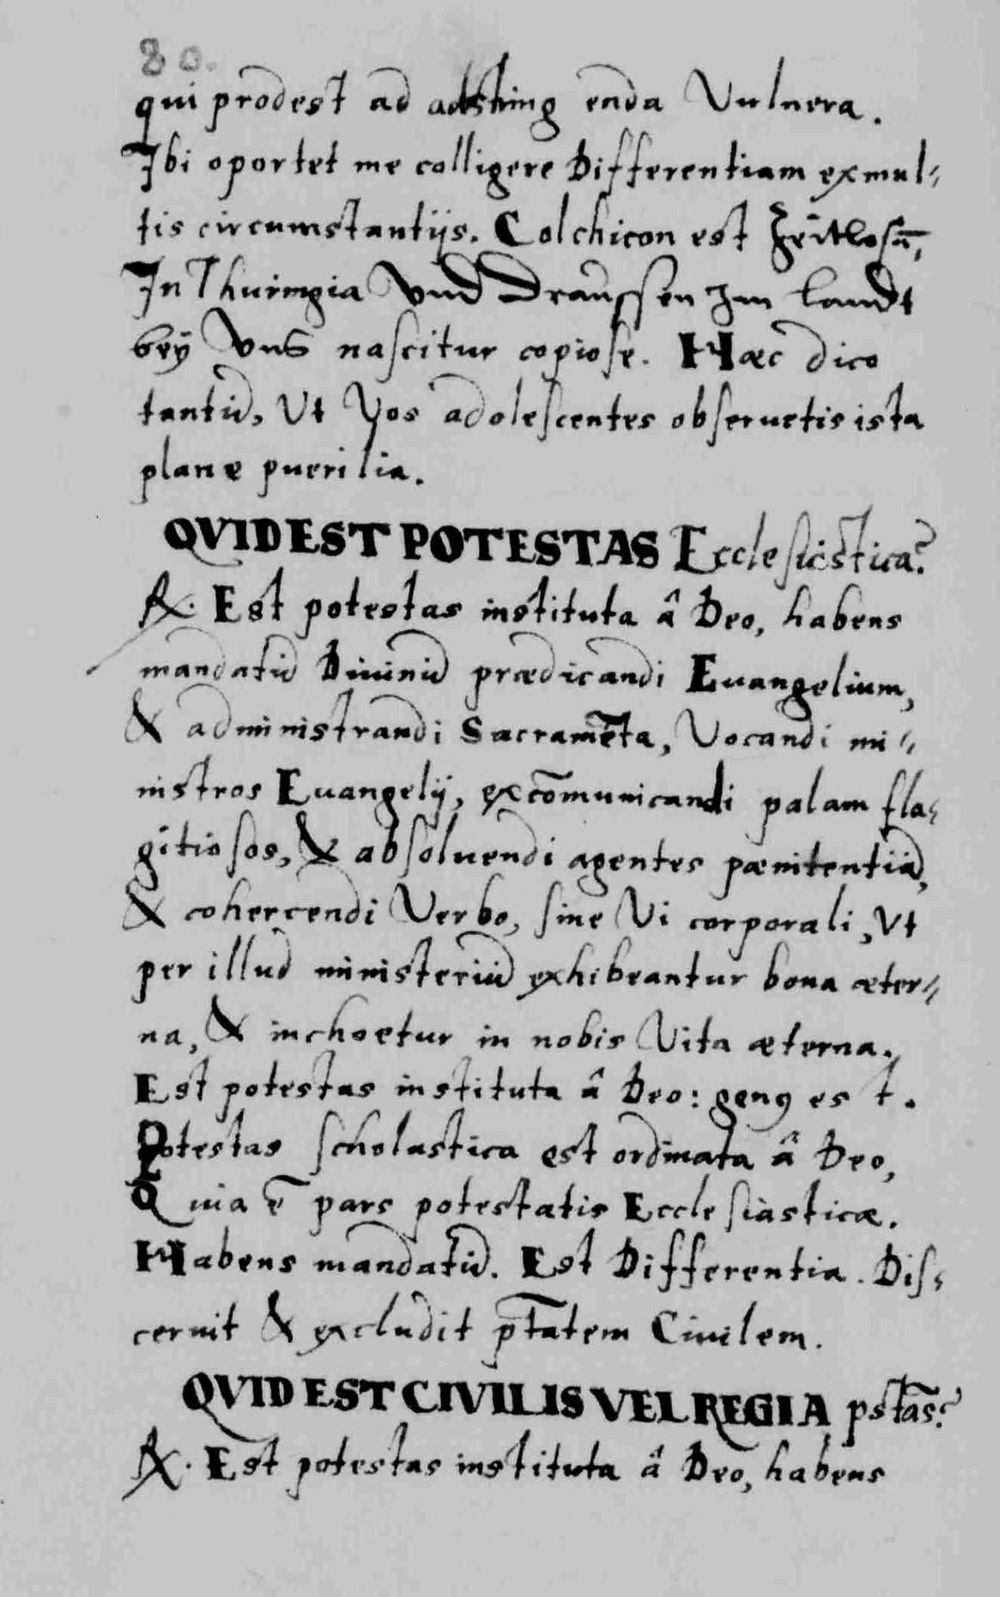 80.
qui prodest ad adstringenda Vulnera.
Ibi oportet me colligere Differentiam ex mul=
tis circumstantijs. Colchicon est Zeitlosā,
In Thuringia Vnd Draussen Im landt
beÿ Vns nascitur copiose. Hæc dico
tantū, Ut Vos adolescentes obseruetis ista
plane puerilia.
QVID EST POTESTAS Ecclesiastica?
R. Est potestas instituta â Deo, habens
mandatū Diuinū prædicandi Euangelium,
& administrandi Sacramēta, Vocandi mi=
nistros Euangelij, excōmunicandi palam fla=
gitiosos, & absoluendi agentes pænitentiā,
& cohercendi Verbo, sine Vi corporali, Vt
per illud ministeriū exhibeantur bona æter=
na, & inchoetur in nobis Vita æterna.
Est potestas instituta â Deo: genꝰ est.
Potestas scholastica est ordinata â Deo,
Quia ē pars potestatis Ecclesiasticæ.
Habens mandatū. Est Differentia. Dis=
cernit & excludit ptātem Ciuilem.
QVID EST CIVILIS VEL REGIA pstās?
R. Est potestas instituta â Deo, habens